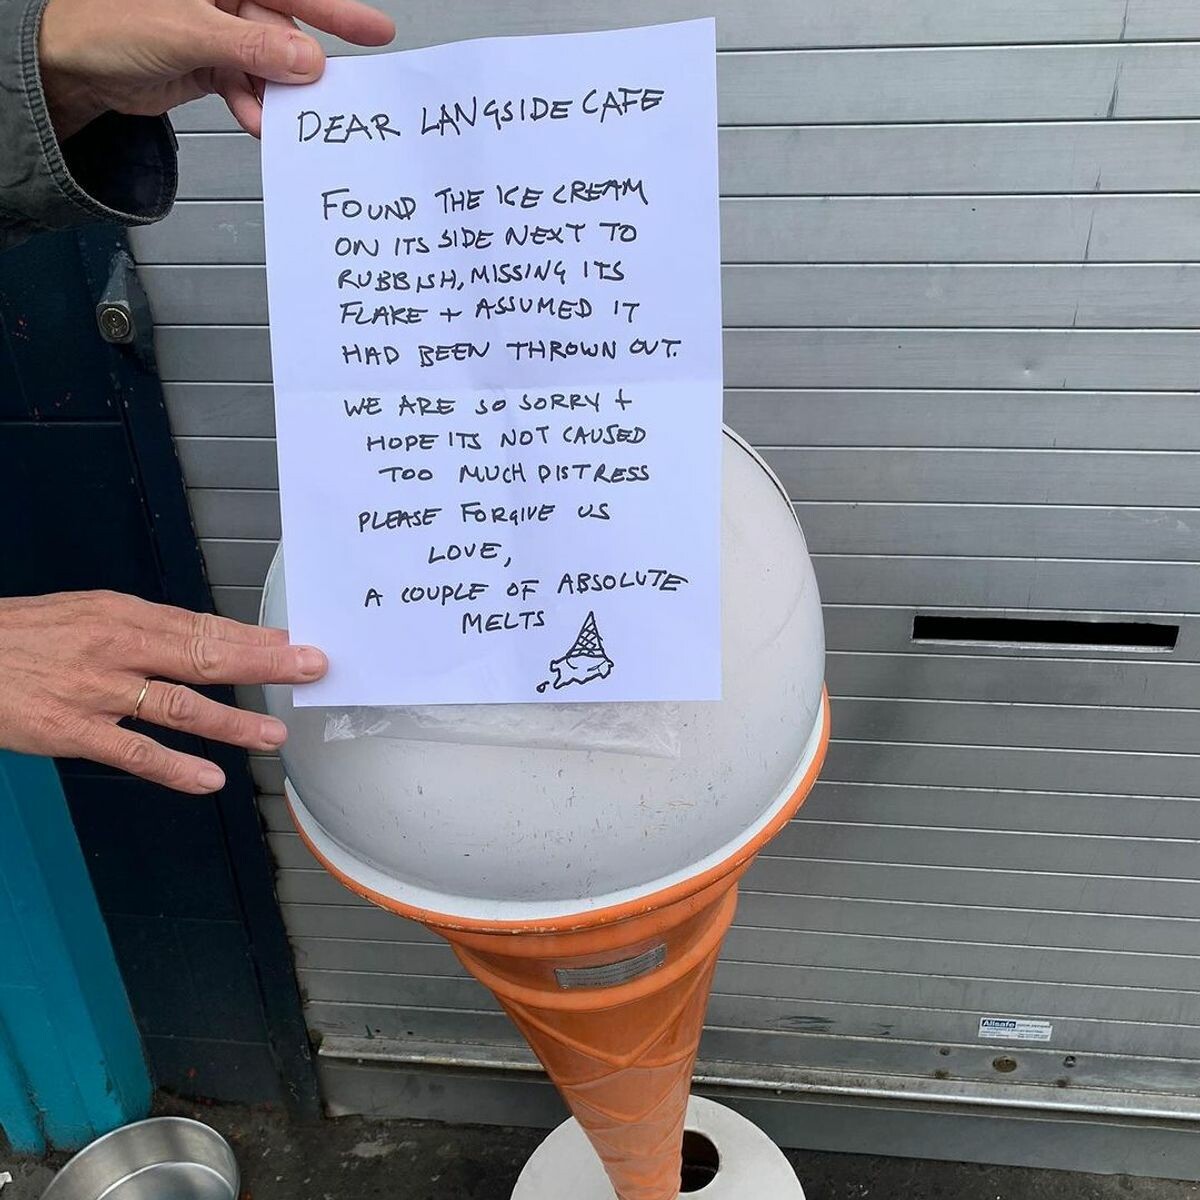 DEAR LANGSIDE CAFE
FOUND THE ICE CREAM
ON ITS SIDE NEXT TO
RUBBISH, MISSING ITS
FLAKE + ASSUMED IT
HAD BEEN THROWN OUT.
WE ARE SO SORRY +
HOPE ITS NOT CAUSED
TOO MUCH DISTRESS
PLEASE FORGIVE US
LOVE,
A COUPLE OF ABSOLUTE
MELTS
Allsafe